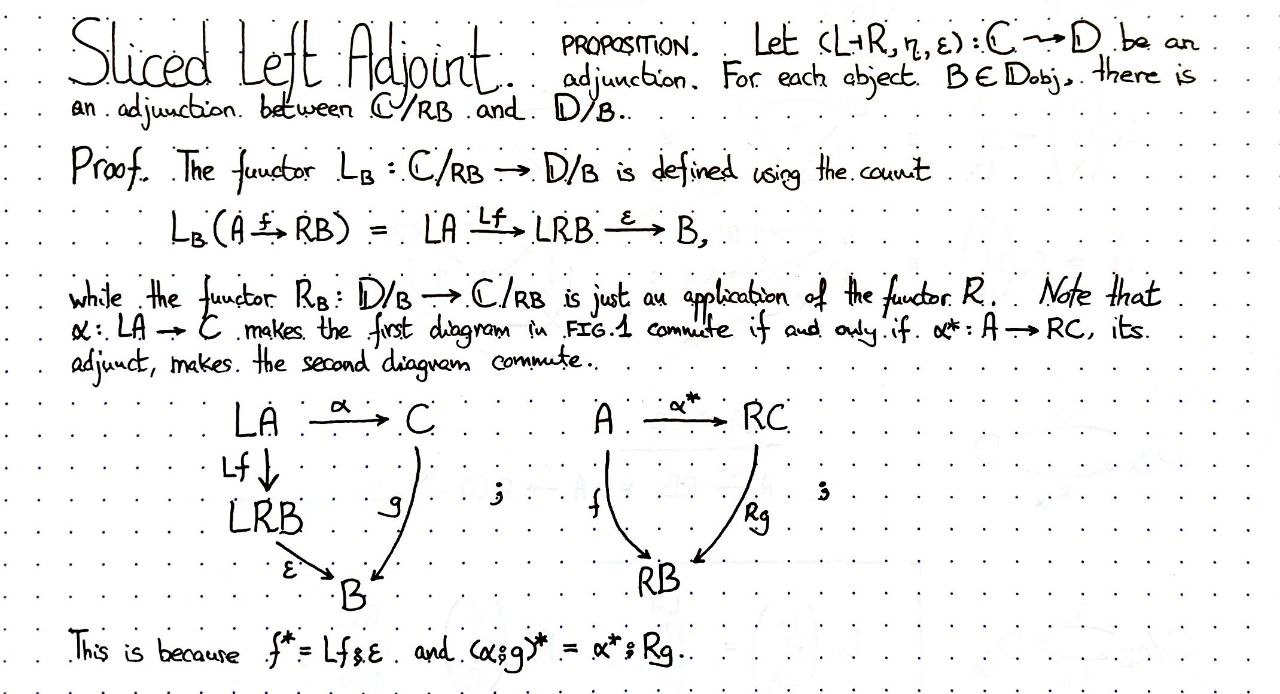 Sliced Left Adjoint. PROPOSITION. Let (L⊣R, η, ε) : ℂ ⇝ 𝔻 be an
adjunction. For each object B ∈ 𝔻obj, there is
an adjunction between ℂ/RB and 𝔻/B.
Proof. The functor L_B : ℂ/RB → 𝔻/B is defined using the counit
L_B(A →f RB) = LA →Lf LRB →ε B,
while the functor R_B : 𝔻/B → ℂ/RB is just an application of the functor R. Note that
α : LA → C makes the first diagram in FIG.1 commute if and only if α* : A → RC, its
adjunct, makes the second diagram commute.
LA →α C
Lf
LRB
g
ε
B
;
A →α* RC
f
Rg
RB
;
This is because f* = Lf⨾ε and (α⨾g)* = α*⨾Rg.